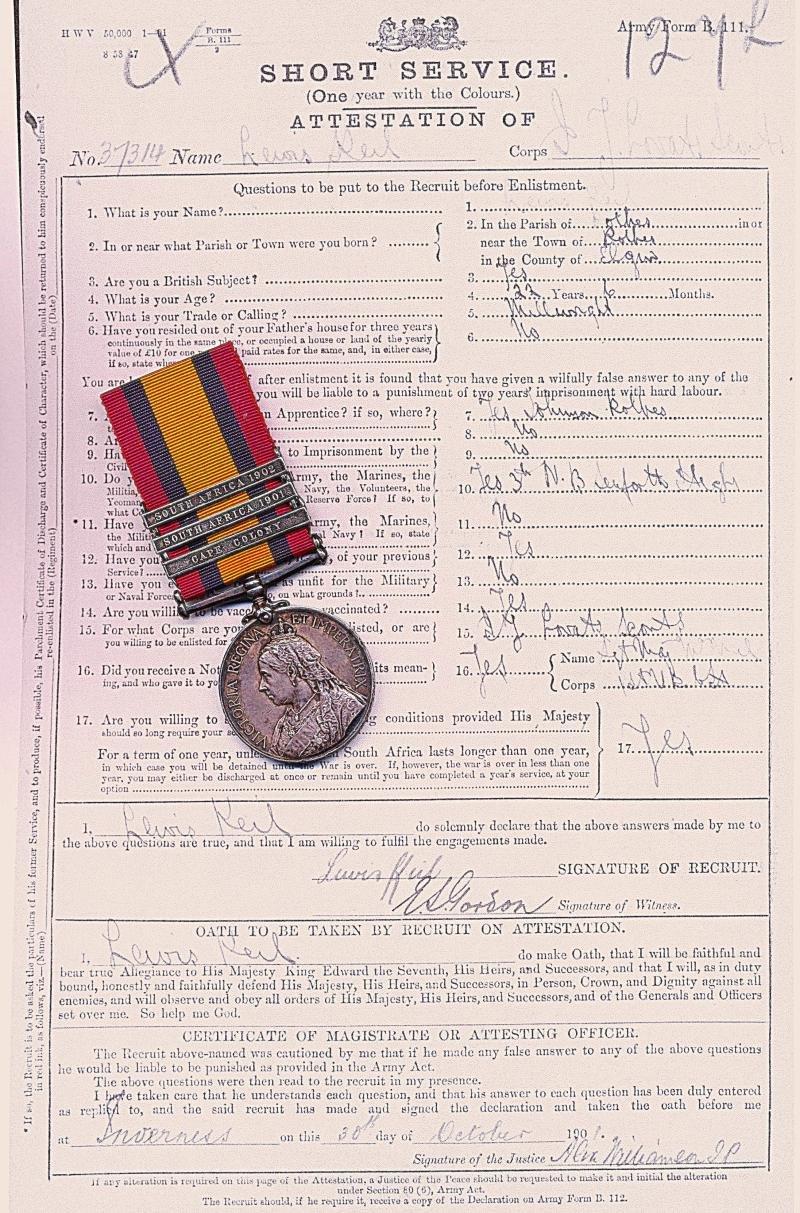 H W V 50,000 1—01 Forms B. 111 2 Army Form B. 111.
8 53 47
1272
SHORT SERVICE.
(One year with the Colours.)
ATTESTATION OF
No. 37314 Name Lewis Keil Corps Lovats Scouts
Questions to be put to the Recruit before Enlistment.
1. What is your Name? 1.
2. In or near what Parish or Town were you born? 2. In the Parish of Rothes in or
near the Town of Rothes
in the County of Elgin
3. Are you a British Subject? 3. Yes
4. What is your Age? 4. 22 Years 6 Months.
5. What is your Trade or Calling? 5. Millwright
6. Have you resided out of your Father's house for three years 6. No
continuously in the same place, or occupied a house or land of the yearly
value of £10 for one paid rates for the same, and, in either case,
if so, state
You are after enlistment it is found that you have given a wilfully false answer to any of the
you will be liable to a punishment of two years' imprisonment with hard labour.
7. an Apprentice? if so, where? 7. Yes Rothes
8. 8. No
9. to Imprisonment by the 9. No
Civil
10. Do Army, the Marines, the 10. Yes 3rd V. B Seaforth High
Militia, Navy, the Volunteers, the
Yeomanry Reserve Force? If so, to
what
*11. Have Army, the Marines, 11. No
the Militia Navy? If so, state
which and
12. Have you of your previous 12. Yes
Service?
13. Have you as unfit for the Military 13. No
or Naval Forces on what grounds?
14. Are you willing to be vaccinated? 14. Yes
15. For what Corps are you enlisted, or are 15. Lovats Scouts
you willing to be enlisted for
16. Did you receive a Notice its mean- 16. Yes Name Sgt Maj
ing, and who gave it to you Corps 1st V B
17. Are you willing to conditions provided His Majesty
should so long require your
For a term of one year, unless South Africa lasts longer than one year, 17. Yes
in which case you will be detained until the War is over. If, however, the war is over in less than one
year, you may either be discharged at once or remain until you have completed a year's service, at your
option
SOUTH AFRICA 1902
SOUTH AFRICA 1901
CAPE COLONY
VICTORIA REGINA ET IMPERATRIX
I, Lewis Keil do solemnly declare that the above answers made by me to
the above questions are true, and that I am willing to fulfil the engagements made.
Lewis Keil SIGNATURE OF RECRUIT.
Gordon Signature of Witness.
OATH TO BE TAKEN BY RECRUIT ON ATTESTATION.
I, Lewis Keil do make Oath, that I will be faithful and
bear true Allegiance to His Majesty King Edward the Seventh, His Heirs, and Successors, and that I will, as in duty
bound, honestly and faithfully defend His Majesty, His Heirs, and Successors, in Person, Crown, and Dignity against all
enemies, and will observe and obey all orders of His Majesty, His Heirs, and Successors, and of the Generals and Officers
set over me. So help me God.
CERTIFICATE OF MAGISTRATE OR ATTESTING OFFICER.
The Recruit above-named was cautioned by me that if he made any false answer to any of the above questions
he would be liable to be punished as provided in the Army Act.
The above questions were then read to the recruit in my presence.
I have taken care that he understands each question, and that his answer to each question has been duly entered
as replied to, and the said recruit has made and signed the declaration and taken the oath before me
at Inverness on this 30th day of October 1901.
Signature of the Justice Alex Williamson JP
If any alteration is required on this page of the Attestation, a Justice of the Peace should be requested to make it and initial the alteration
under Section 80 (6), Army Act.
The Recruit should, if he require it, receive a copy of the Declaration on Army Form B. 112.
* If so, the Recruit is to be asked the particulars of his former Service, and to produce, if possible, his Parchment Certificate of Discharge and Certificate of Character, which should be returned to him conspicuously endorsed
in red ink, as follows, viz.—(Name) re-enlisted in the (Regiment) on the (Date)